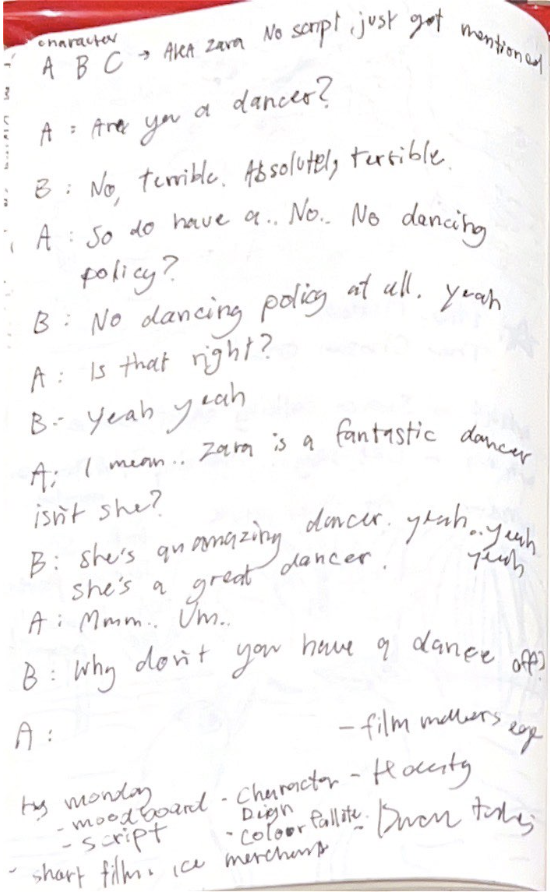 character
A B C → AKA Zara No script, just got mentioned
A : Are you a dancer?
B : No, terrible. Absolutely terrible.
A : So do have a.. No.. No dancing
policy?
B : No dancing policy at all. yeah
A : Is that right?
B :- yeah yeah
A; I mean.. Zara is a fantastic dancer
isn't she?
B : she's an amazing dancer. yeah.. yeah
yeah
she's a great dancer.
A : Mmm.. Um..
B : Why don't you have a dance off?
A :
- film makers
by monday
- moodboard - Character -
- script
- Colour Pallite. -
- short film. ice merchants